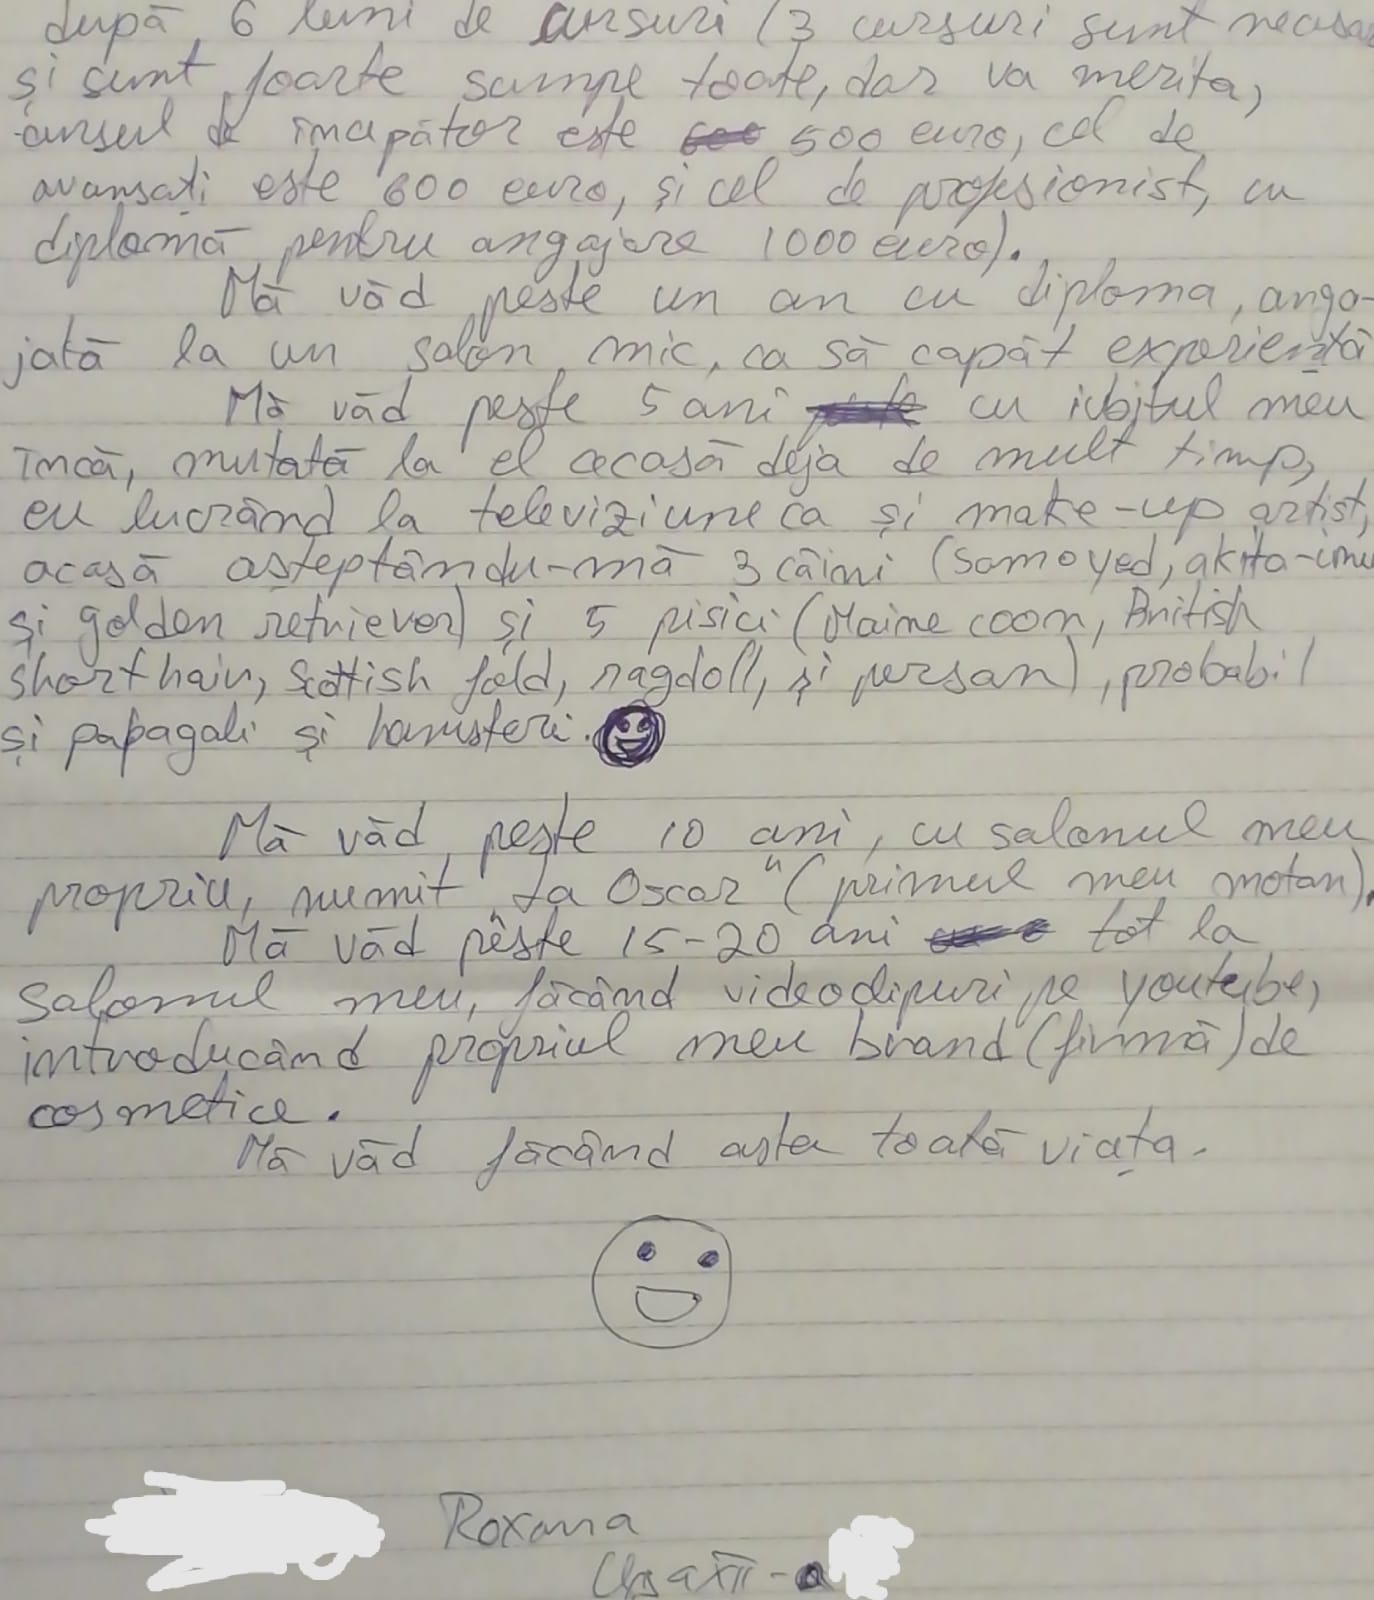 după 6 luni de cursuri (3 cursuri sunt
și sunt foarte scumpe toate, dar va merita,
cursul de începător este 500 euro, cel de
avansați este 600 euro, și cel de profesionist, cu
diplomă pentru angajare 1000 euro).
Mă văd peste un an cu diploma, anga-
jată la un salon mic, ca să capăt experiență
Mă văd peste 5 ani cu iubitul meu
încă, mutată la el acasă deja de mult timp,
eu lucrând la televiziune ca și make-up artist,
acasă așteptându-mă 3 câini (samoyed, akita-inu
și golden retriever) și 5 pisici (Maine coon, British
shorthair, Scottish fold, ragdoll, și persan), probabil
și papagali și hamsteri.
Mă văd peste 10 ani, cu salonul meu
propriu, numit „La Oscar" (primul meu motan).
Mă văd peste 15-20 ani tot la
salonul meu, făcând videoclipuri pe youtube,
introducând propriul meu brand (firmă) de
cosmetice.
Mă văd făcând asta toată viața.
Roxana
Clasa XII-a